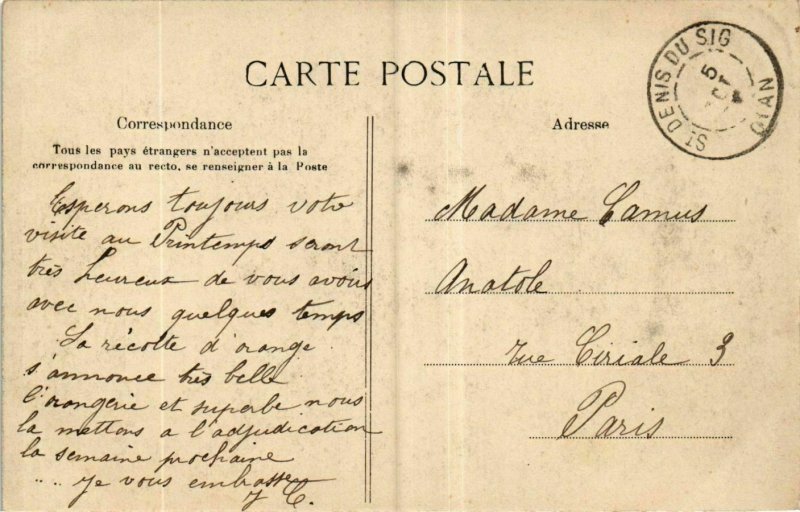 CARTE POSTALE
Correspondance
Tous les pays étrangers n'acceptent pas la
correspondance au recto, se renseigner à la Poste
Esperons toujours votre
visite au Printemps seront
très heureux de vous avoir
avec nous quelques temps
La récolte d'orange
s'annonce très belle
l'orangerie et superbe nous
la mettons a l'adjudication
la semaine prochaine
je vous embrasse
J C.
Adresse
Madame Camus
Anatole
rue Ciriale 3
Paris
ST DENIS DU SIG
ORAN
5
OCT